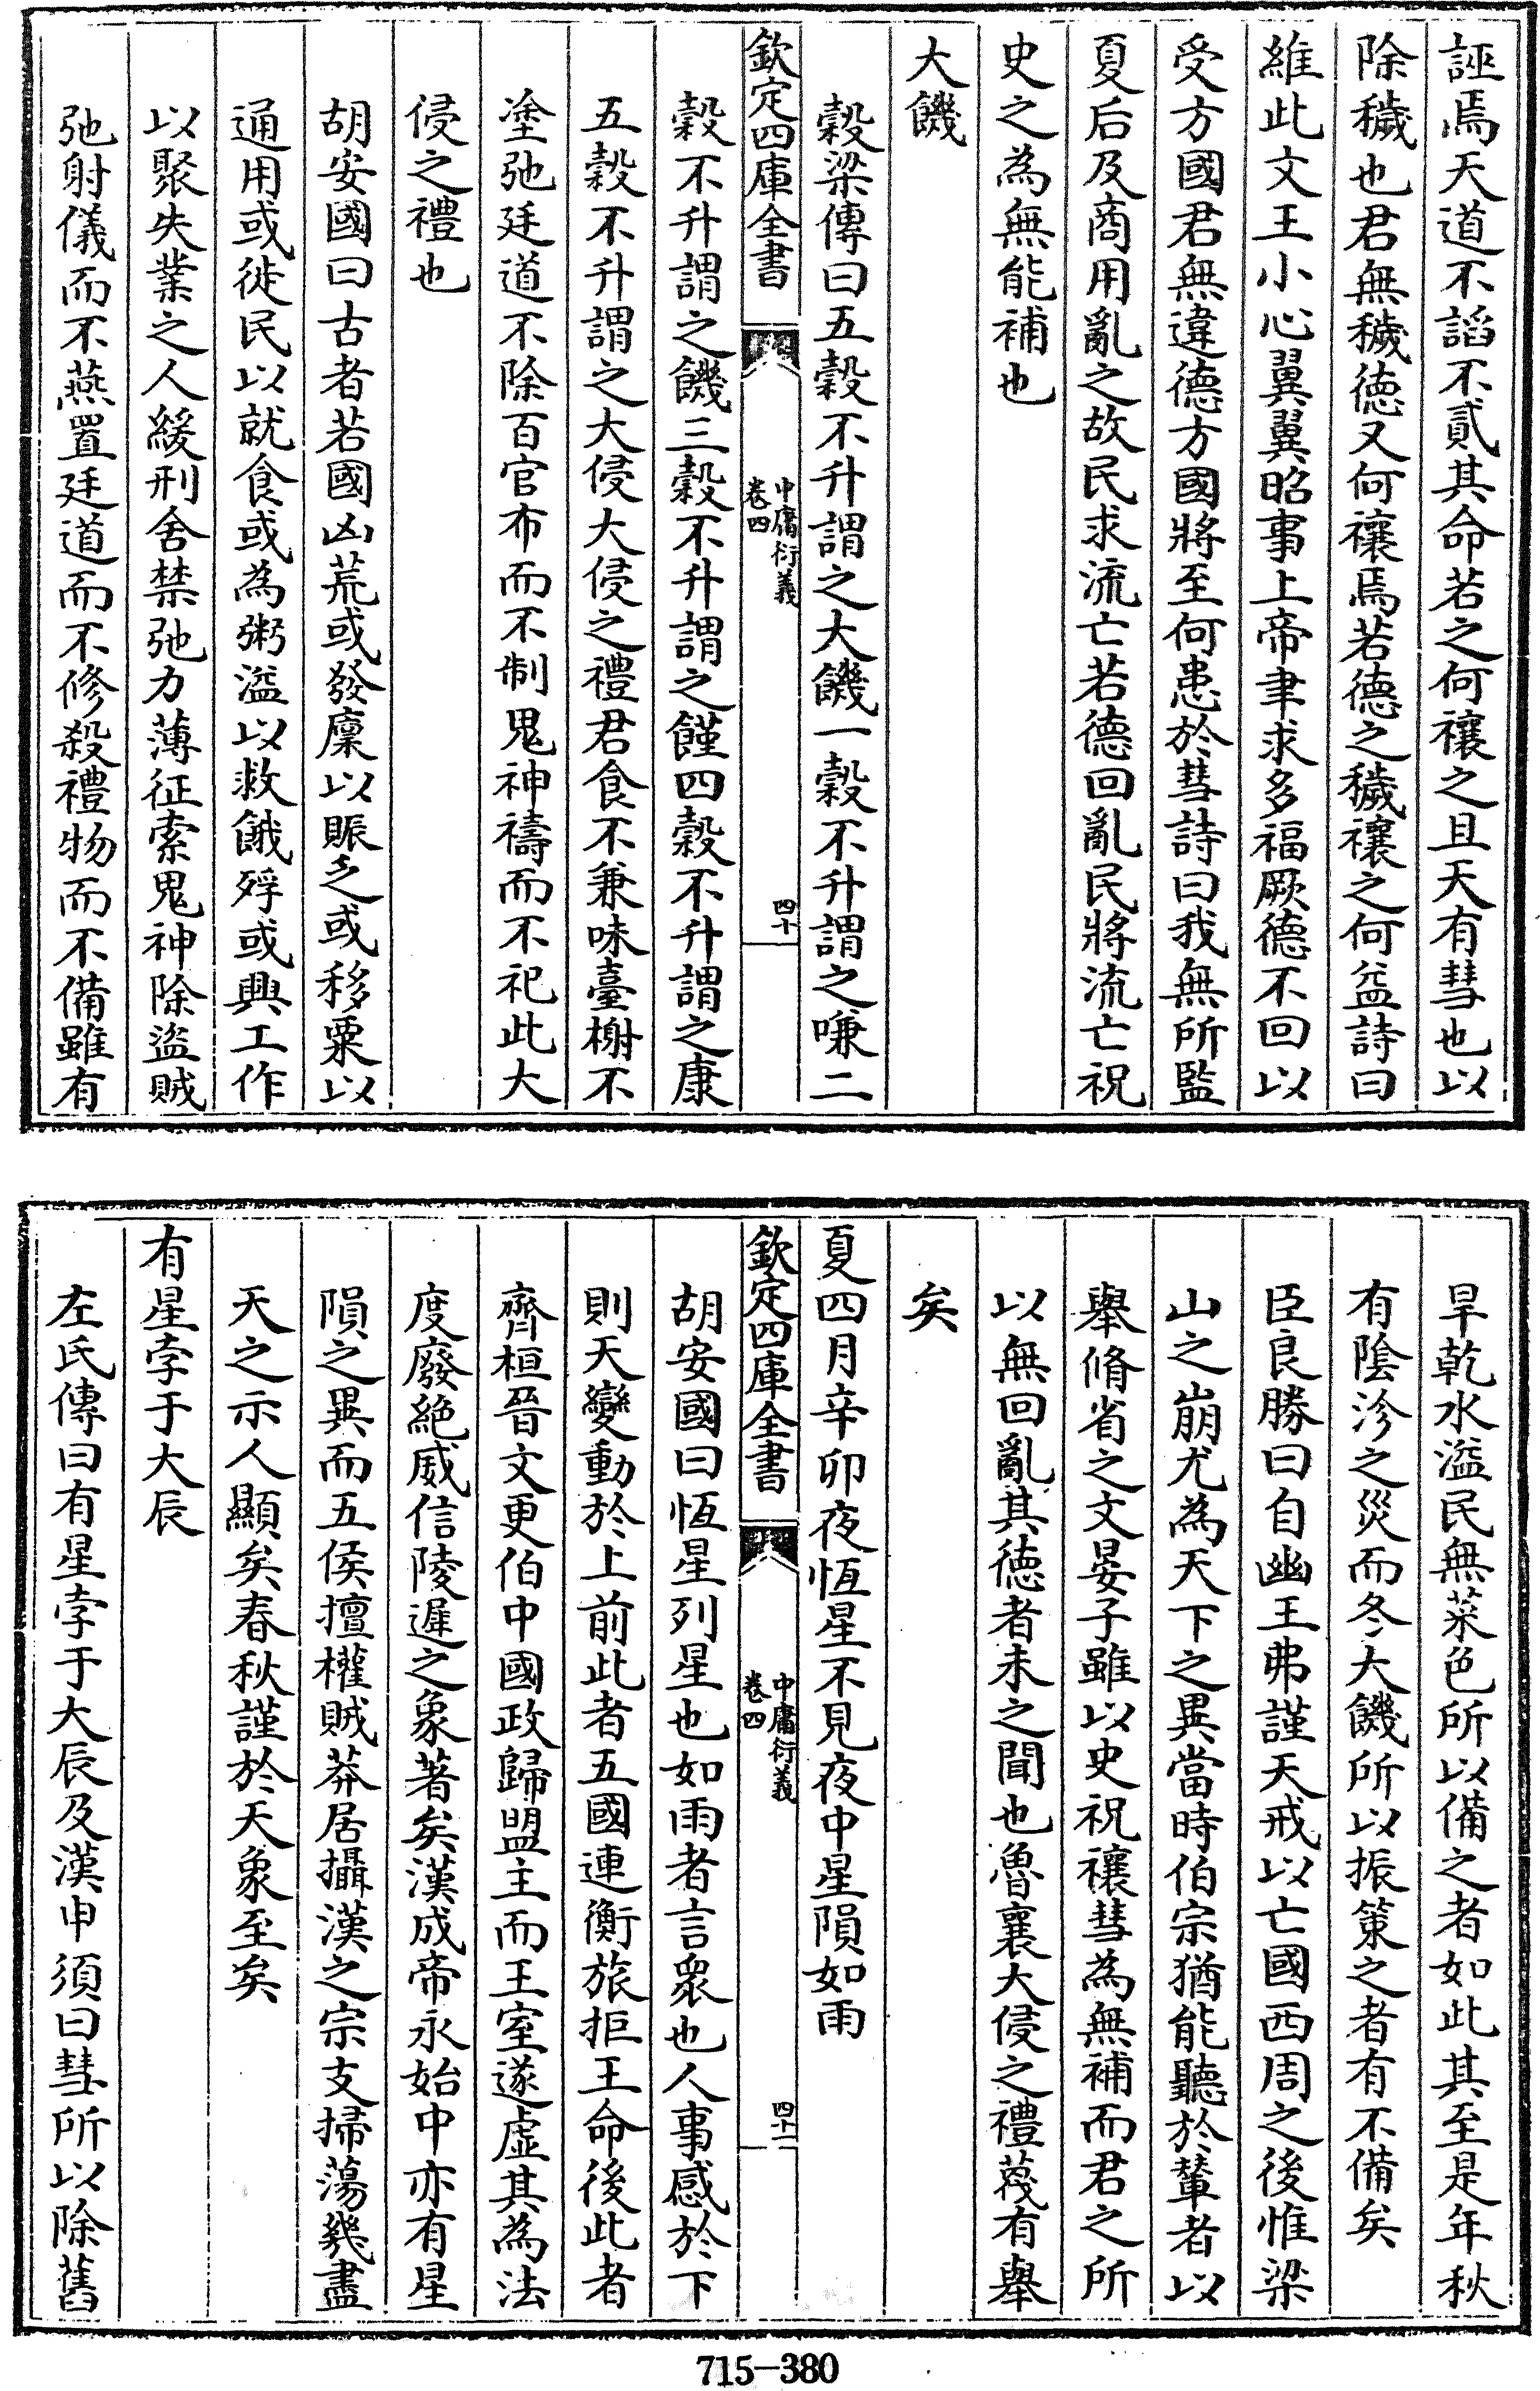 誣焉天道不謟不貳其命若之何禳之且天有彗也以
除穢也君無穢徳又何禳焉若德之穢禳之何益詩曰
維此文王小心翼翼昭事上帝聿求多福厥德不回以
受方國君無違德方國將至何患於彗詩曰我無所監
夏后及商用亂之故民求流亡若德回亂民將流亡祝
史之為無能補也
大饑
穀梁傳曰五穀不升謂之大饑一穀不升謂之嗛二
欽定四庫全書
中庸衍義
卷四
四十
穀不升謂之饑三穀不升謂之饉四穀不升謂之康
五穀不升謂之大侵大侵之禮君食不兼味臺榭不
塗弛廷道不除百官布而不制鬼神禱而不祀此大
侵之禮也
胡安國曰古者若國凶荒或發廩以賑乏或移粟以
通用或徙民以就食或為粥溢以救餓殍或興工作
以聚失業之人緩刑舍禁弛力薄征索鬼神除盜賊
弛射儀而不燕置廷道而不修殺禮物而不備雖有
旱乾水溢民無菜色所以備之者如此其至是年秋
有陰沴之災而冬大饑所以振策之者有不備矣
臣良勝曰自幽王弗謹天戒以亡國西周之後惟梁
山之崩尤為天下之異當時伯宗猶能聽於輦者以
舉脩省之文晏子雖以史祝禳彗為無補而君之所
以無回亂其徳者未之聞也魯襄大侵之禮蔑有舉
矣
夏四月辛卯夜恆星不見夜中星隕如雨
欽定四庫全書
中庸衍義
卷四
四十一
胡安國曰恆星列星也如雨者言衆也人事感於下
則天變動於上前此者五國連衡旅拒王命後此者
齊桓晉文更伯中國政歸盟主而王室遂虛其為法
度廢絶威信陵遲之象著矣漢成帝永始中亦有星
隕之異而五侯擅權賊莽居攝漢之宗支掃蕩幾盡
天之示人顯矣春秋謹於天象至矣
有星孛于大辰
左氏傳曰有星孛于大辰及漢申須曰彗所以除舊
715-380